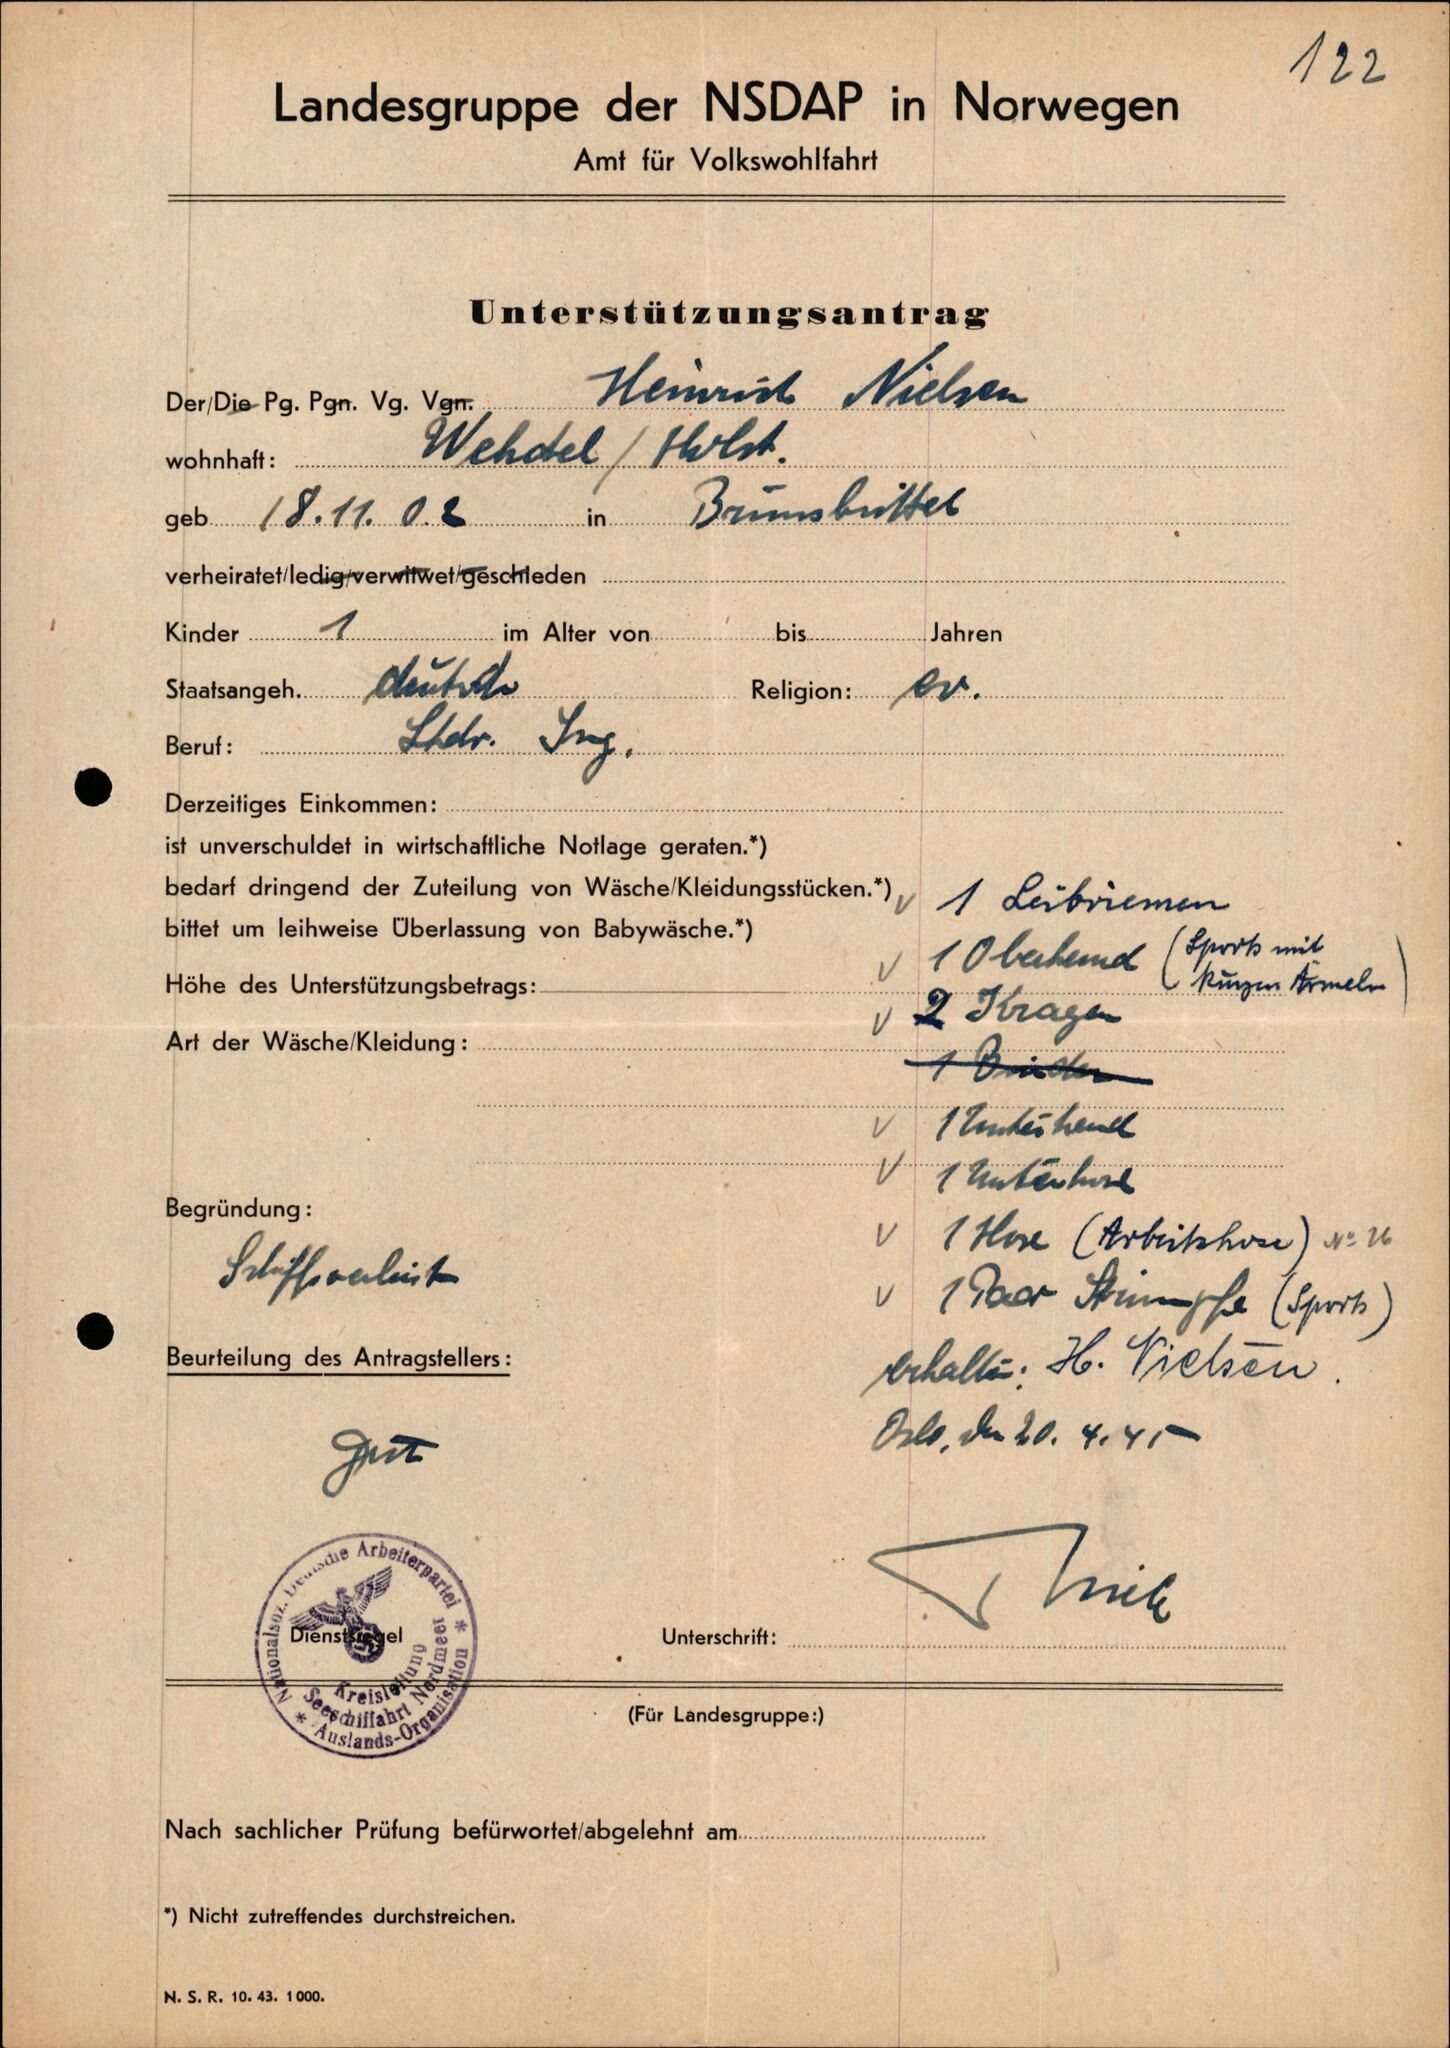 122
Landesgruppe der NSDAP in Norwegen
Amt für Volkswohlfahrt
Unterstützungsantrag
Der/Die Pg. Pgn. Vg. Vgn. Heinrich Nielsen
wohnhaft: Wehdel / Holst.
geb 18.11.02 in Brunsbüttel
verheiratet/ledig/verwitwet/geschieden
Kinder 1 im Alter von bis Jahren
Staatsangeh. deutsch Religion: ev.
Beruf: Ing.
Derzeitiges Einkommen:
ist unverschuldet in wirtschaftliche Notlage geraten.*)
bedarf dringend der Zuteilung von Wäsche/Kleidungsstücken.*) v 1 Leibriemen
bittet um leihweise Überlassung von Babywäsche.*)
v 1 Oberhemd (Sports mit kurzen Ärmeln)
Höhe des Unterstützungsbetrags:
v 2 Kragen
Art der Wäsche/Kleidung:
1 Binder
v 1 Unterhemd
v 1 Unterhose
Begründung:
v 1 Hose (Arbeitshose) No 26
Schiffsverlust
v 1 Paar Strümpfe (Sports)
Beurteilung des Antragstellers:
erhalten: H. Nielsen.
gut
Oslo, den 20. 4. 45
Nationalsoz. Deutsche Arbeiterpartei
Auslands-Organisation
Kreisleitung
Seeschiffahrt Nordmeer
Dienstsiegel
Unterschrift:
(Für Landesgruppe:)
Nach sachlicher Prüfung befürwortet/abgelehnt am
*) Nicht zutreffendes durchstreichen.
N. S. R. 10. 43. 1000.